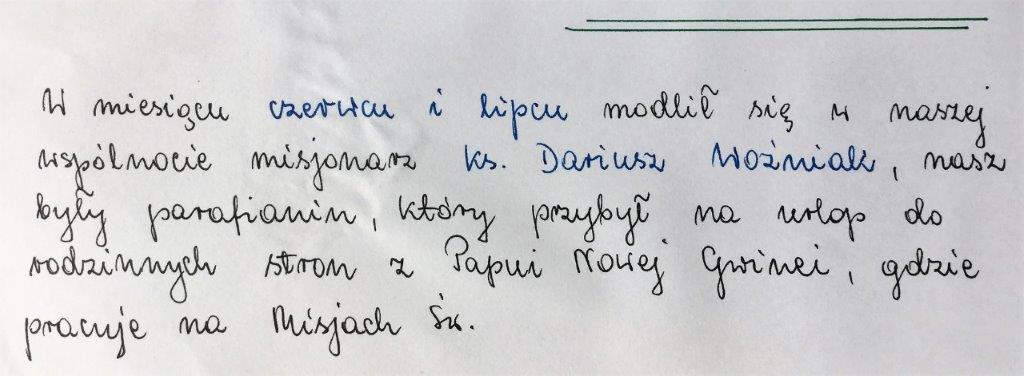 W miesiącu czerwcu i lipcu modlił się w naszej
wspólnocie misjonarz ks. Dariusz Woźniak, nasz
były parafianin, który przybył na urlop do
rodzinnych stron z Papui Nowej Gwinei, gdzie
pracuje na Misjach Św.